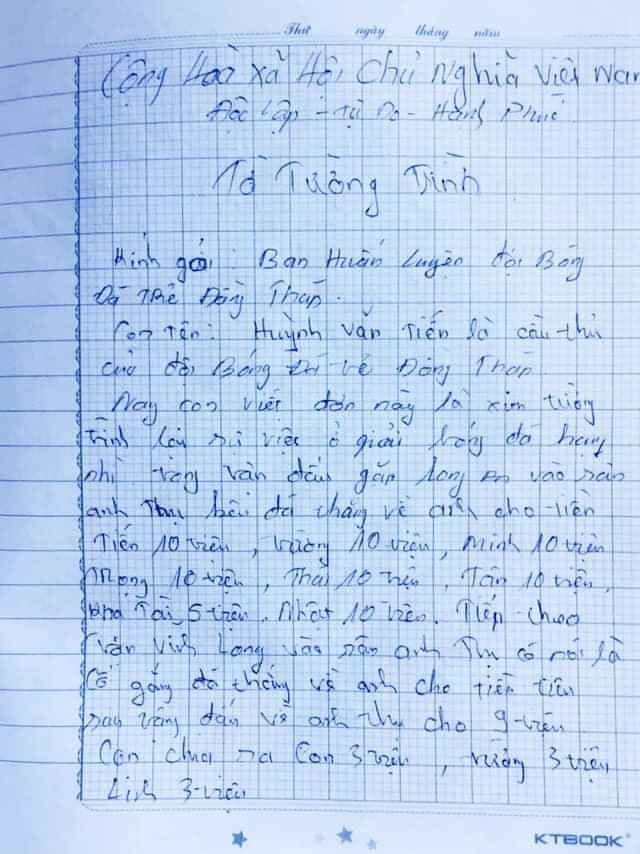 Thứ ngày tháng năm
Cộng Hoà xã Hội Chủ Nghĩa Việt Nam
Độc Lập - Tự Do - Hành Phúc
Tờ Tường Trình
Kính gởi: Ban Huấn Luyện đội Bóng
Đá Trẻ Đồng Tháp.
Con Tên: Huỳnh Văn Tiến là cầu thủ
của đội Bóng Đá trẻ Đồng Tháp
Nay con viết đơn này là xin tường
trình lại sự việc ở giải bóng đá hạng
nhì trong trận đấu gặp long An vào sân
anh Thụ kêu đá thắng về anh cho tiền
Tiến 10 triệu, vương 10 triệu, Minh 10 triệu
Trọng 10 triệu, Thái 10 triệu, Tân 10 triệu,
Tài 5 triệu. Nhật 10 triệu. Tiếp theo
trận Vĩnh Long vào sân anh Thụ có nói là
Cố gắng đá thắng về anh cho tiền tiêu
sau trận đấu về anh thụ cho 9 triệu
Con chia ra Con 3 triệu, vương 3 triệu
Linh 3 triệu
KTBOOK